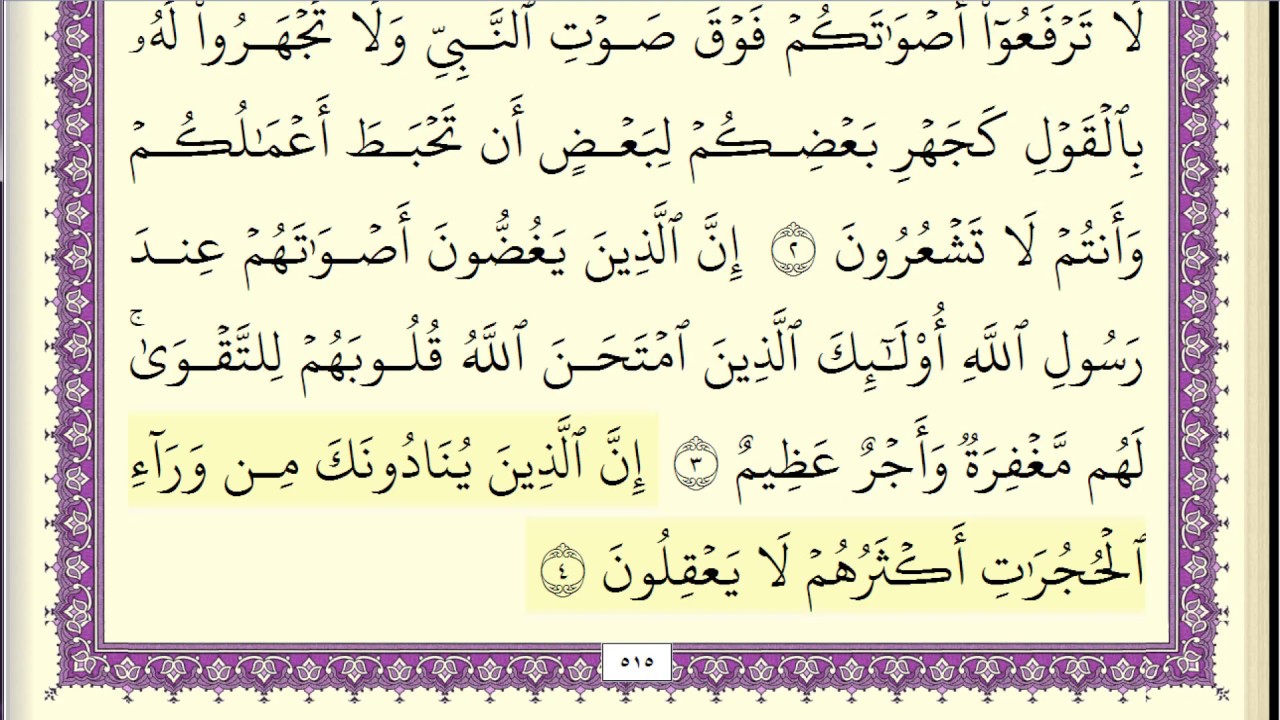 لَا تَرۡفَعُوٓاْ أَصۡوَٰتَكُمۡ فَوۡقَ صَوۡتِ ٱلنَّبِيِّ وَلَا تَجۡهَرُواْ لَهُۥ
بِٱلۡقَوۡلِ كَجَهۡرِ بَعۡضِكُمۡ لِبَعۡضٍ أَن تَحۡبَطَ أَعۡمَٰلُكُمۡ
وَأَنتُمۡ لَا تَشۡعُرُونَ ٢ إِنَّ ٱلَّذِينَ يَغُضُّونَ أَصۡوَٰتَهُمۡ عِندَ
رَسُولِ ٱللَّهِ أُوْلَٰٓئِكَ ٱلَّذِينَ ٱمۡتَحَنَ ٱللَّهُ قُلُوبَهُمۡ لِلتَّقۡوَىٰۚ
لَهُم مَّغۡفِرَةٞ وَأَجۡرٌ عَظِيمٌ ٣ إِنَّ ٱلَّذِينَ يُنَادُونَكَ مِن وَرَآءِ
ٱلۡحُجُرَٰتِ أَكۡثَرُهُمۡ لَا يَعۡقِلُونَ ٤
٥١٥